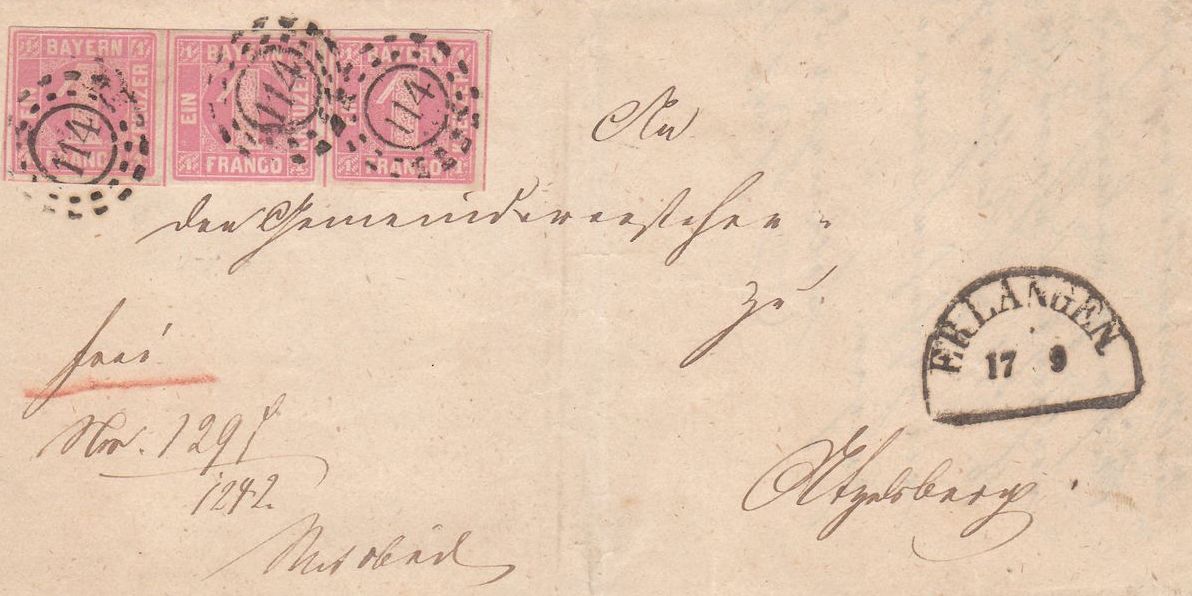 BAYERN
EIN KREUZER
FRANCO
114
BAYERN
EIN KREUZER
FRANCO
114
BAYERN
EIN KREUZER
FRANCO
114
An
den Gemeindevorsteher
zu
Atzelsberg.
frei
Nro. 1291
1242.
ERLANGEN
17 9